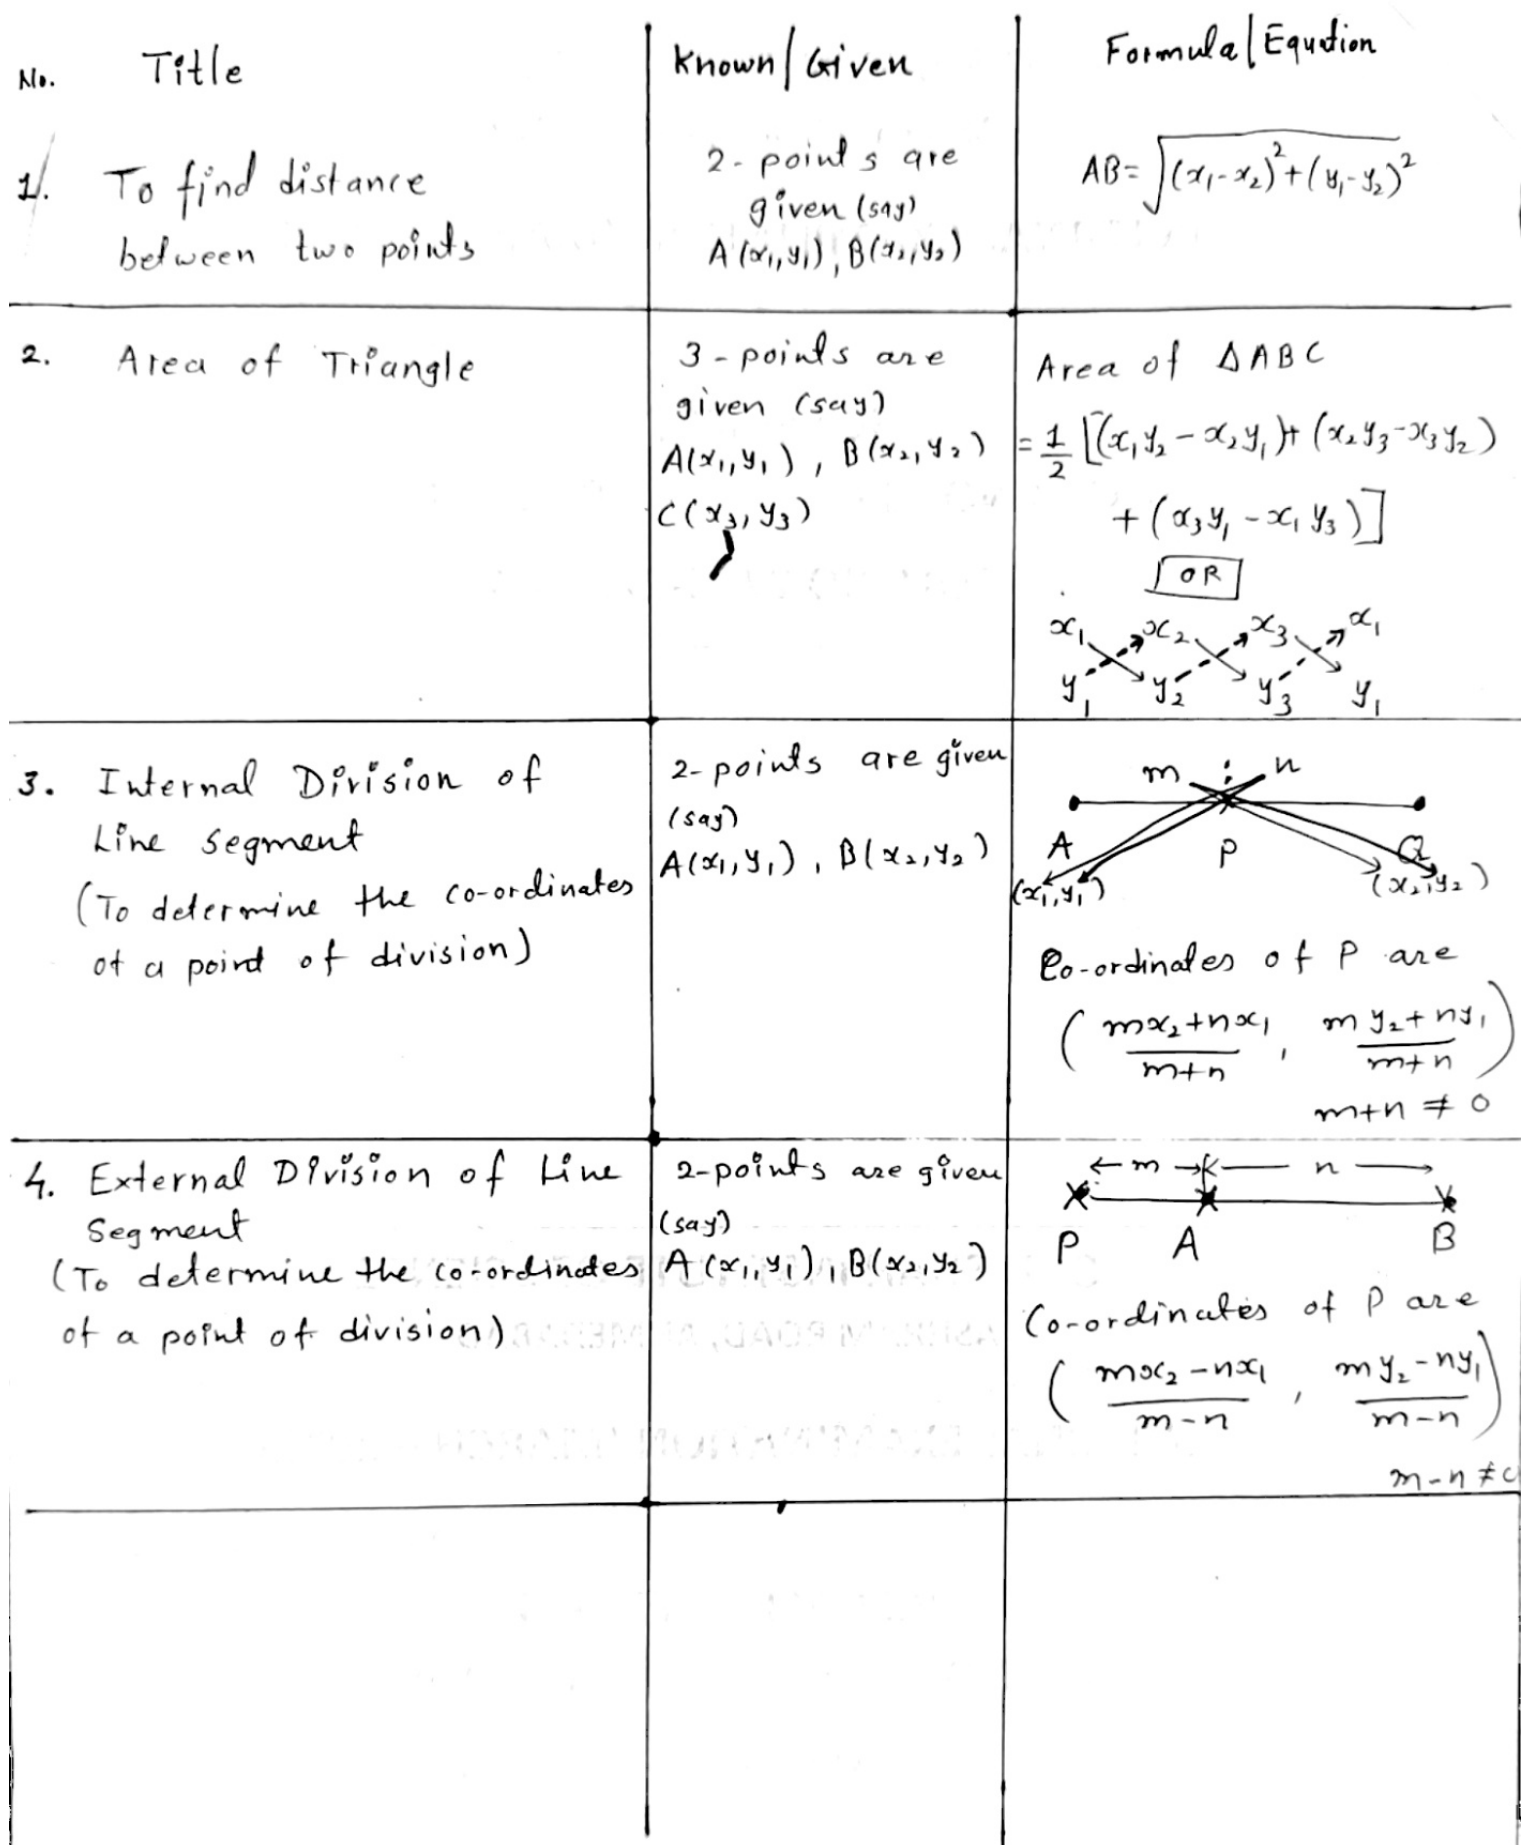 No. Title Known/Given Formula/Equation
1. To find distance
between two points
2-points are
given (say)
A(x₁,y₁), B(x₂,y₂)
AB = √((x₁-x₂)²+(y₁-y₂)²)
2. Area of Triangle
3-points are
given (say)
A(x₁,y₁), B(x₂,y₂)
C(x₃,y₃)
Area of ΔABC
= 1/2 [(x₁y₂-x₂y₁)+(x₂y₃-x₃y₂)
+(x₃y₁-x₁y₃)]
OR
x₁ x₂ x₃ x₁
y₁ y₂ y₃ y₁
3. Internal Division of
Line segment
(To determine the co-ordinates
of a point of division)
2-points are given
(say)
A(x₁,y₁), B(x₂,y₂)
m : n
A P
(x₁,y₁) (x₂,y₂)
Co-ordinates of P are
((mx₂+nx₁)/(m+n), (my₂+ny₁)/(m+n))
m+n ≠ 0
4. External Division of Line
Segment
(To determine the co-ordinates
of a point of division)
2-points are given
(say)
A(x₁,y₁), B(x₂,y₂)
m n
P A B
Co-ordinates of P are
((mx₂-nx₁)/(m-n), (my₂-ny₁)/(m-n))
m-n ≠